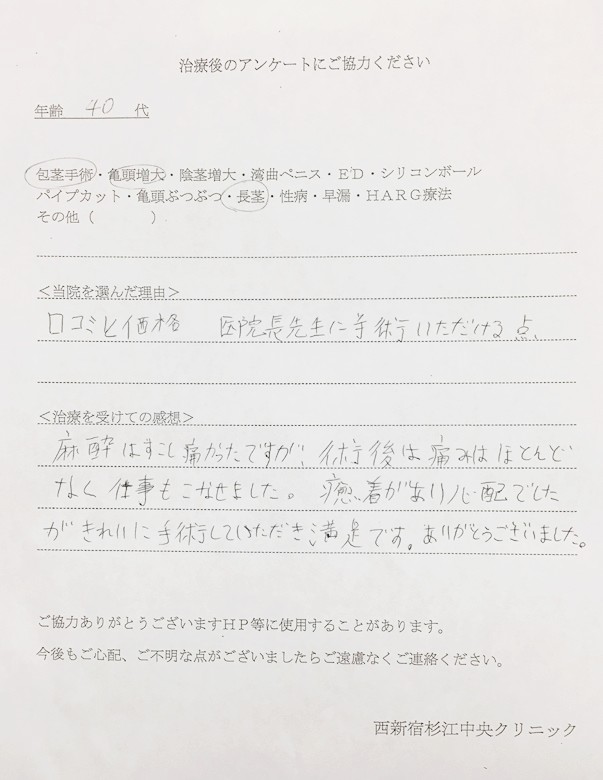 治療後のアンケートにご協力ください
年齢 40 代
包茎手術・亀頭増大・陰茎増大・湾曲ペニス・ED・シリコンボール
パイプカット・亀頭ぶつぶつ・長茎・性病・早漏・HARG療法
その他（　　　）
＜当院を選んだ理由＞
口コミと価格　医院長先生に手術いただける点、
＜治療を受けての感想＞
麻酔はすこし痛かったですが、術後は痛みはほとんど
なく仕事もこなせました。癒着があり心配でした
がきれいに手術していただき満足です。ありがとうございました。
ご協力ありがとうございますHP等に使用することがあります。
今後もご心配、ご不明な点がございましたらご遠慮なくご連絡ください。
西新宿杉江中央クリニック